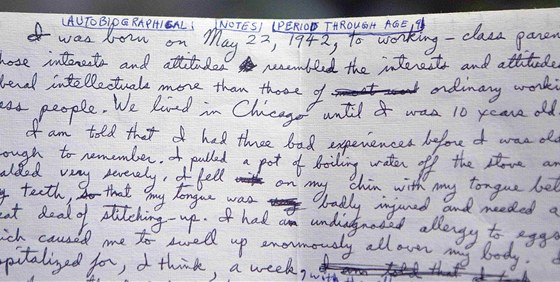 AUTOBIOGRAPHICAL NOTES PERIOD THROUGH AGE 9
I was born on May 22, 1942, to working-class paren
hose interests and attitudes resembled the interests and attitudes
beral intellectuals more than those of ordinary worki
ass people. We lived in Chicago until I was 10 years old.
I am told that I had three bad experiences before I was old
ough to remember. I pulled a pot of boiling water off the stove an
alded very severely. I fell on my chin with my tongue bet
y teeth, so that my tongue was badly injured and needed a
eat deal of stitching-up. I had an undiagnosed allergy to eggs
ich caused me to swell up enormously all over my body. I
spitalized for, I think, a week,